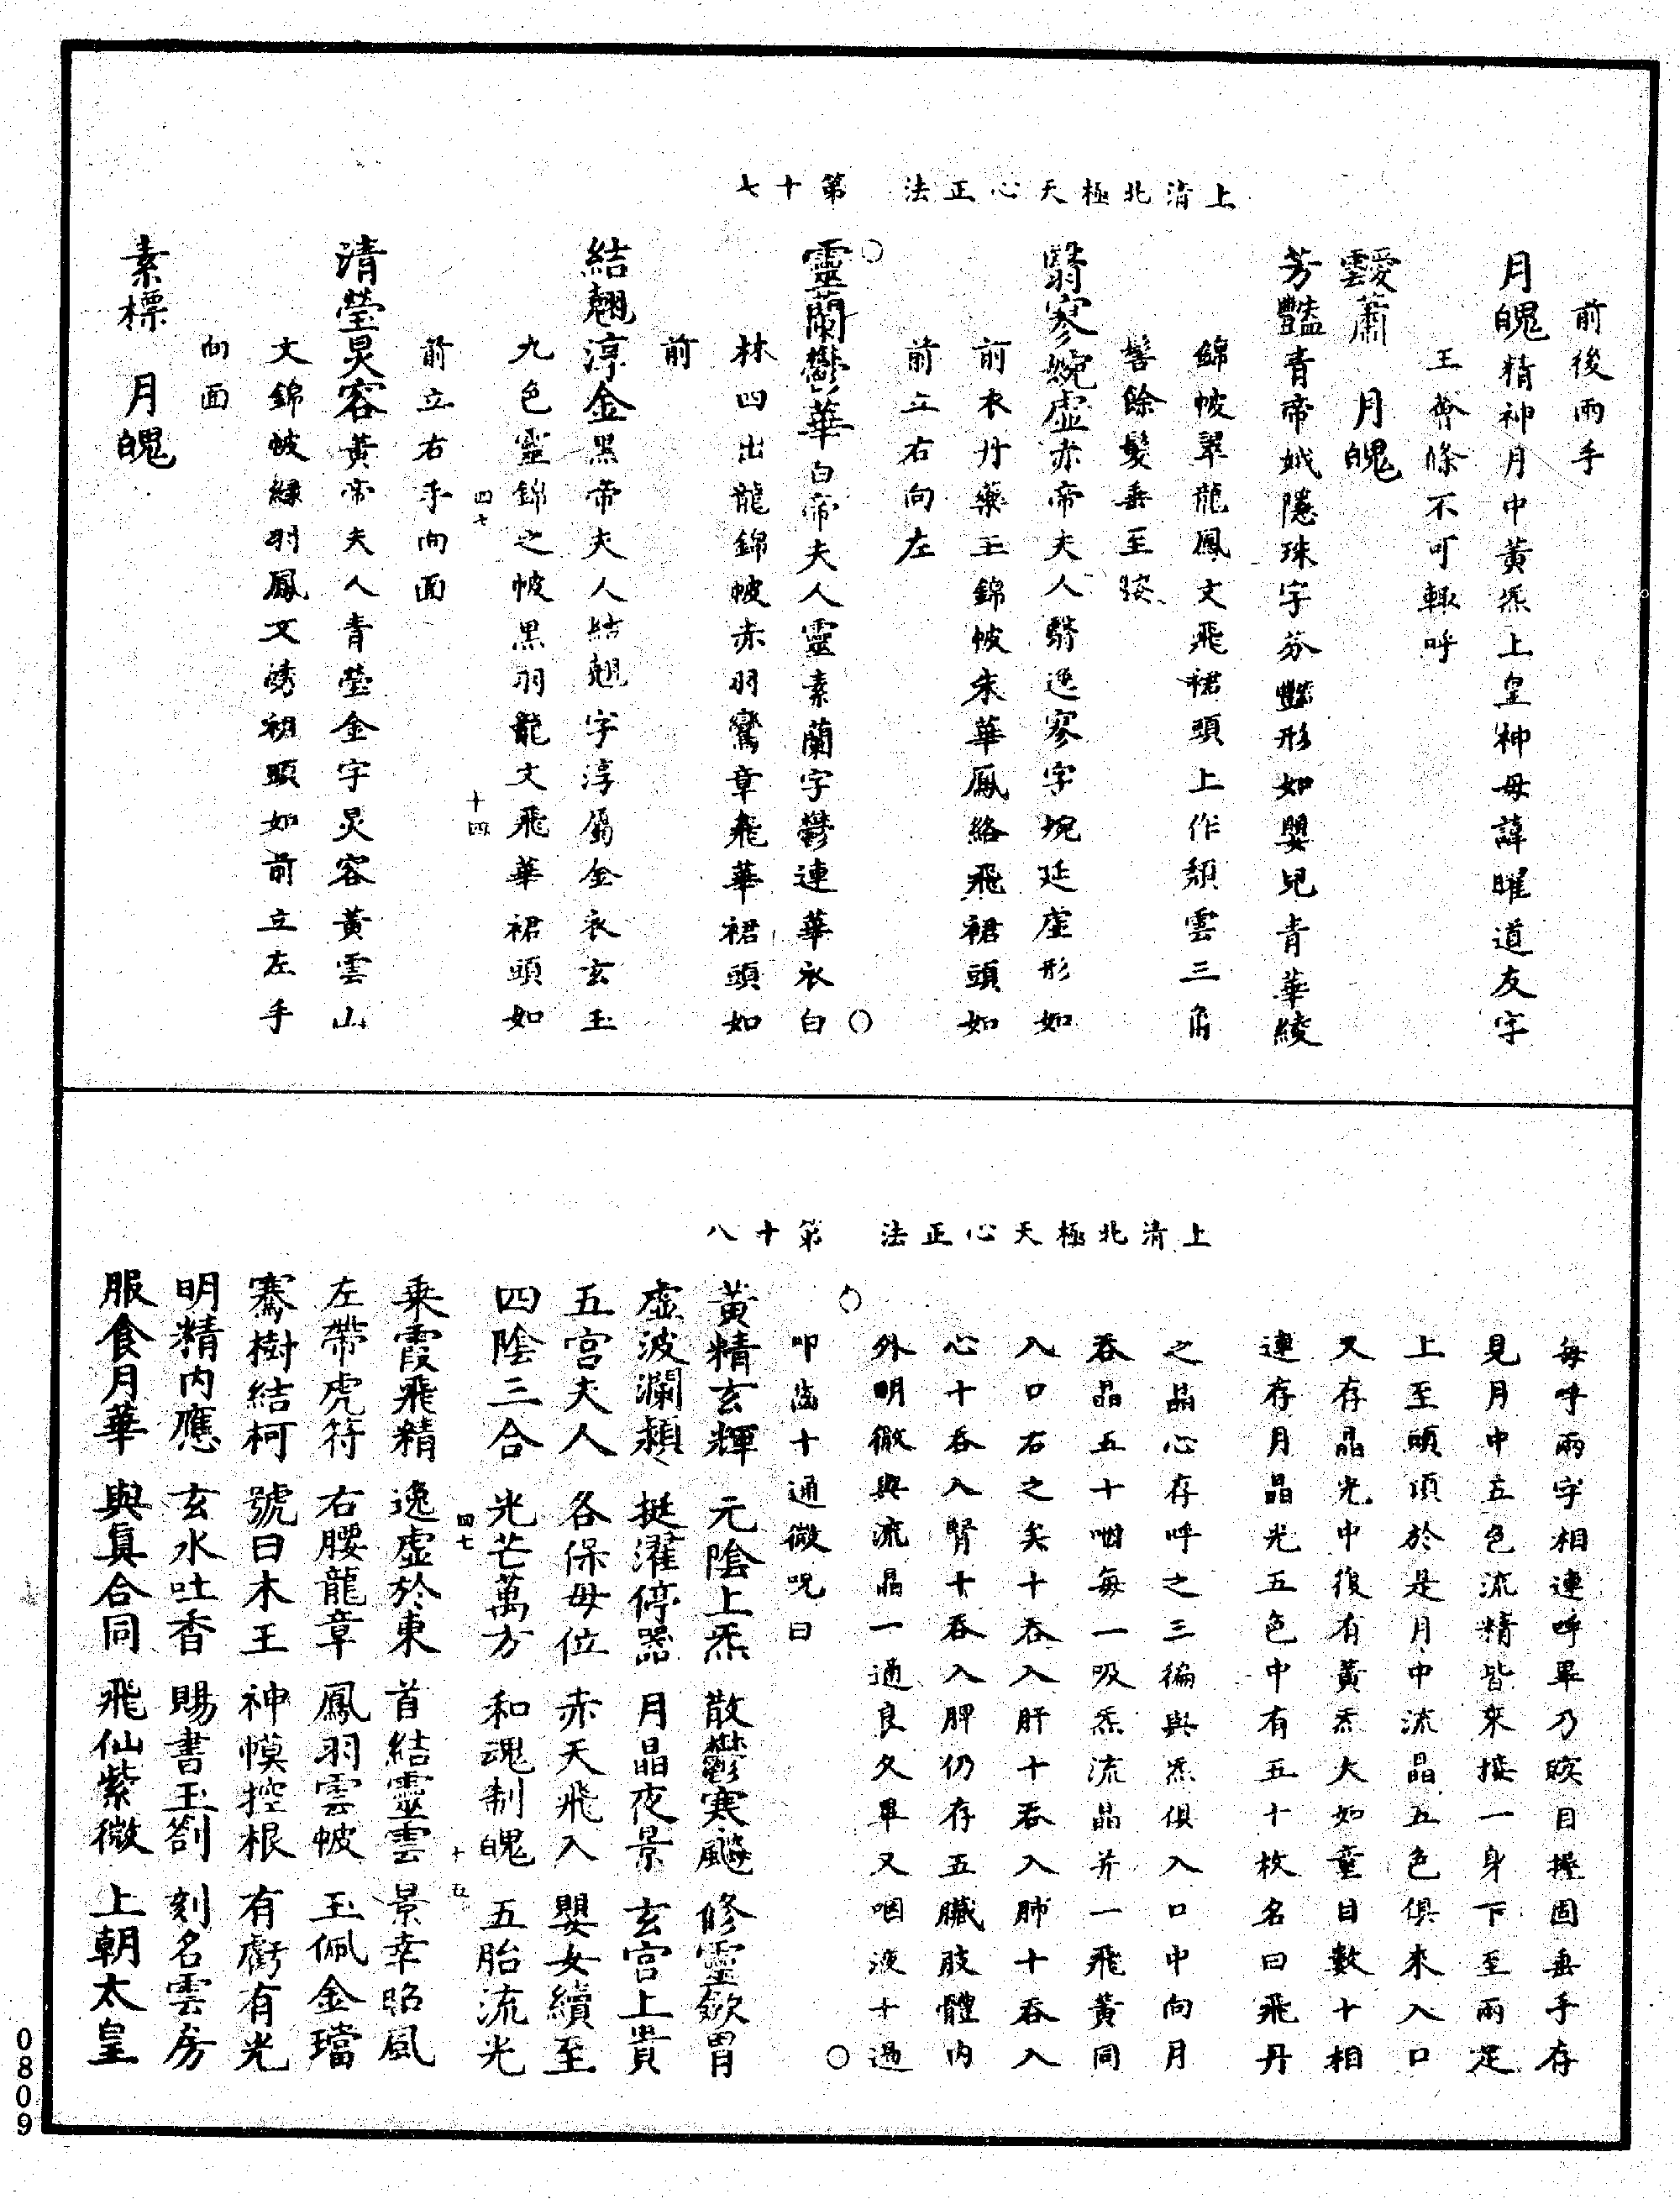 上清北極天心正法　第十七
前後兩手
月魄精神月中黃炁上皇神母諱曜道友字
王薈條不可輙呼
靉蕭　月魄
芳豔青帝娥隱珠字芬豔形如嬰兒青華綾
錦帔翠龍鳳文飛裙頭上作頹雲三角
髻餘髮垂至腰
翳寥婉虛赤帝夫人翳逸寥字婉延虛形如
前衣丹蘂玉錦帔朱華鳳絡飛裙頭如
前立右向左
靈蘭鬱華白帝夫人靈素蘭字鬱連華衣白
林四出龍錦帔赤羽鸞章飛華裙頭如
前
結翹淳金黑帝夫人結翹字淳屬金衣玄玉
九色靈錦之帔黑羽龍文飛華裙頭如
四七　十四
前立右手向面
清瑩炅容黃帝夫人青瑩金字炅容黃雲山
文錦帔綠羽鳳文繡裙頭如前立左手
向面
素標　月魄
上清北極天心正法　第十八
每呼兩字相連呼畢乃瞑目握固垂手存
見月中五色流精皆來接一身下至兩足
上至頭頂於是月中流晶五色俱來入口
又存晶光中復有黃炁大如童目數十相
連存月晶光五色中有五十枚名曰飛丹
之晶心存呼之三徧與炁俱入口中向月
吞晶五十咽每一吸炁流晶并一飛黃同
入口右之矣十吞入肝十吞入肺十吞入
心十吞入腎十吞入脾仍存五臟肢體內
外明徹與流晶一通良久畢又咽液十過
叩齒十通微呪曰
黃精玄輝　元陰上炁　散鬱寒飈　修靈斂胃
虛波瀾頹　挺濯停器　月晶夜景　玄宮上貴
五宮夫人　各保母位　赤天飛入　嬰女續至
四陰三合　光芒萬方　和魂制魄　五胎流光
四七　十五
乘霞飛精　逸虛於東　首結靈雲　景幸昭風
左帶虎符　右腰龍章　鳳羽雲帔　玉佩金璫
騫樹結柯　號曰木王　神幙控根　有虧有光
明精內應　玄水吐香　賜書玉劄　刻名雲房
服食月華　與眞合同　飛仙紫微　上朝太皇
0809